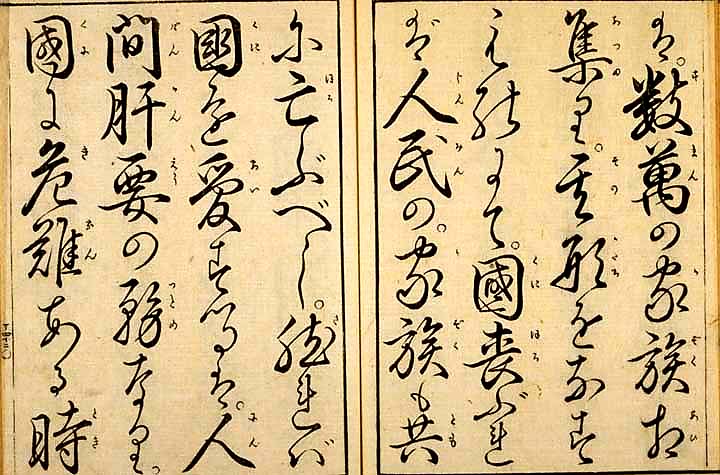 は。数萬の家族相
集り。其形をなす
ものにて。國喪ぶれ
ば人民の。家族も共
に亡ぶべし。然れば
國を愛するは。人
間肝要の務なり。
國に危難ある時